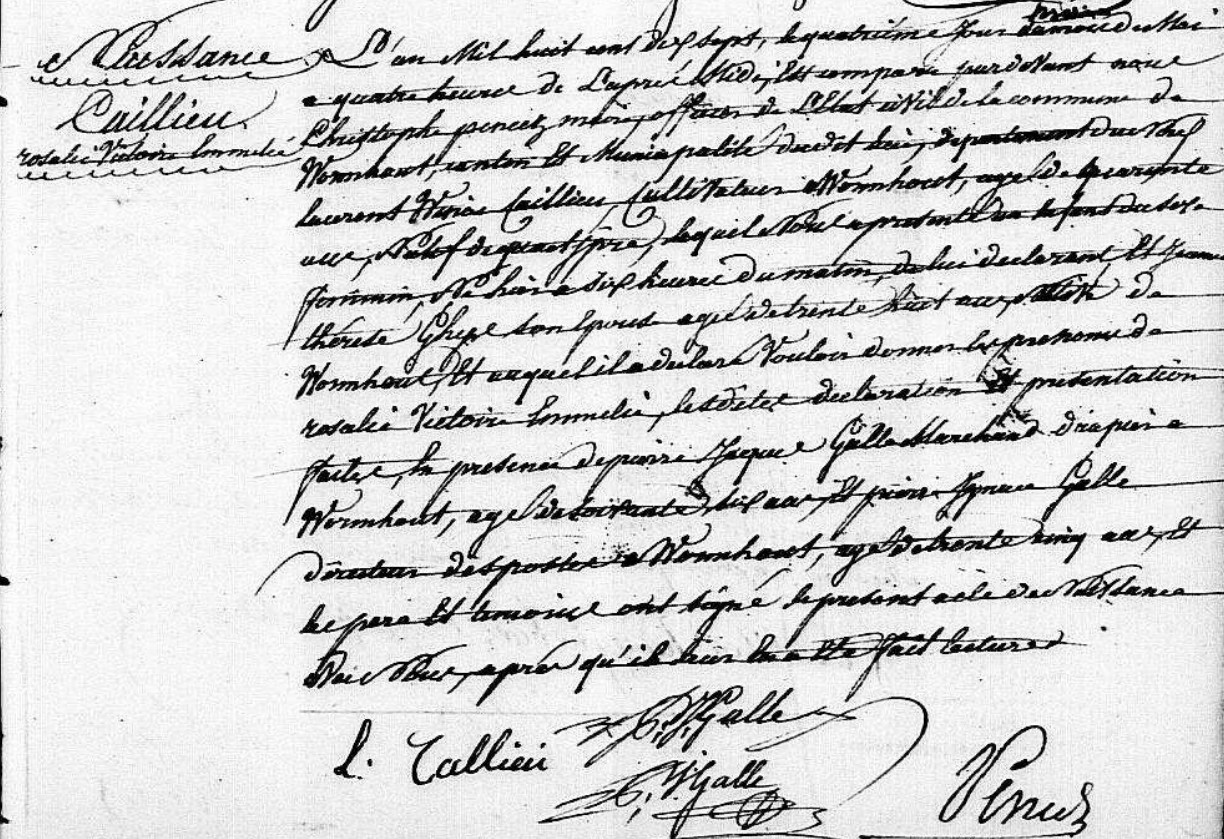 Naissance
Caillieu
rosalie Victoire Emmelie
L'an Mil huit cent dix sept, le quatrième Jour du mois de Mai
a quatre heures de L'après Midi, Est comparu pardevant nous
Christophe maire, officier de L'Etat civil de la commune de
Wormhout, canton Et Municipalité dudit lieu, departement du Nord
laurent Caillieu, Cultivateur a Wormhout, agé de quarante
ans, Natif de lequel Nous a presenté un Enfant du sexe
feminin, Né hier a six heures du matin, de lui declarant Et Jeanne
thérèse son Epouse agée de trente huit ans, Native de
Wormhout, Et auquel il a declaré Vouloir donner les prenoms de
rosalie Victoire Emmelie, lesdites declaration Et presentation
faites, En presence de pierre Jacques Galle Marchand drapier a
Wormhout, agé de soixante dix ans, Et pierre Ignace Galle
directeur des postes a Wormhout, agé de trente cinq ans, Et
les pere Et temoins ont signé le present acte de Naissance
avec Nous, après qu'il leur En a Eté fait lecture
P. J. Galle
L. Callieu
P. J. Galle